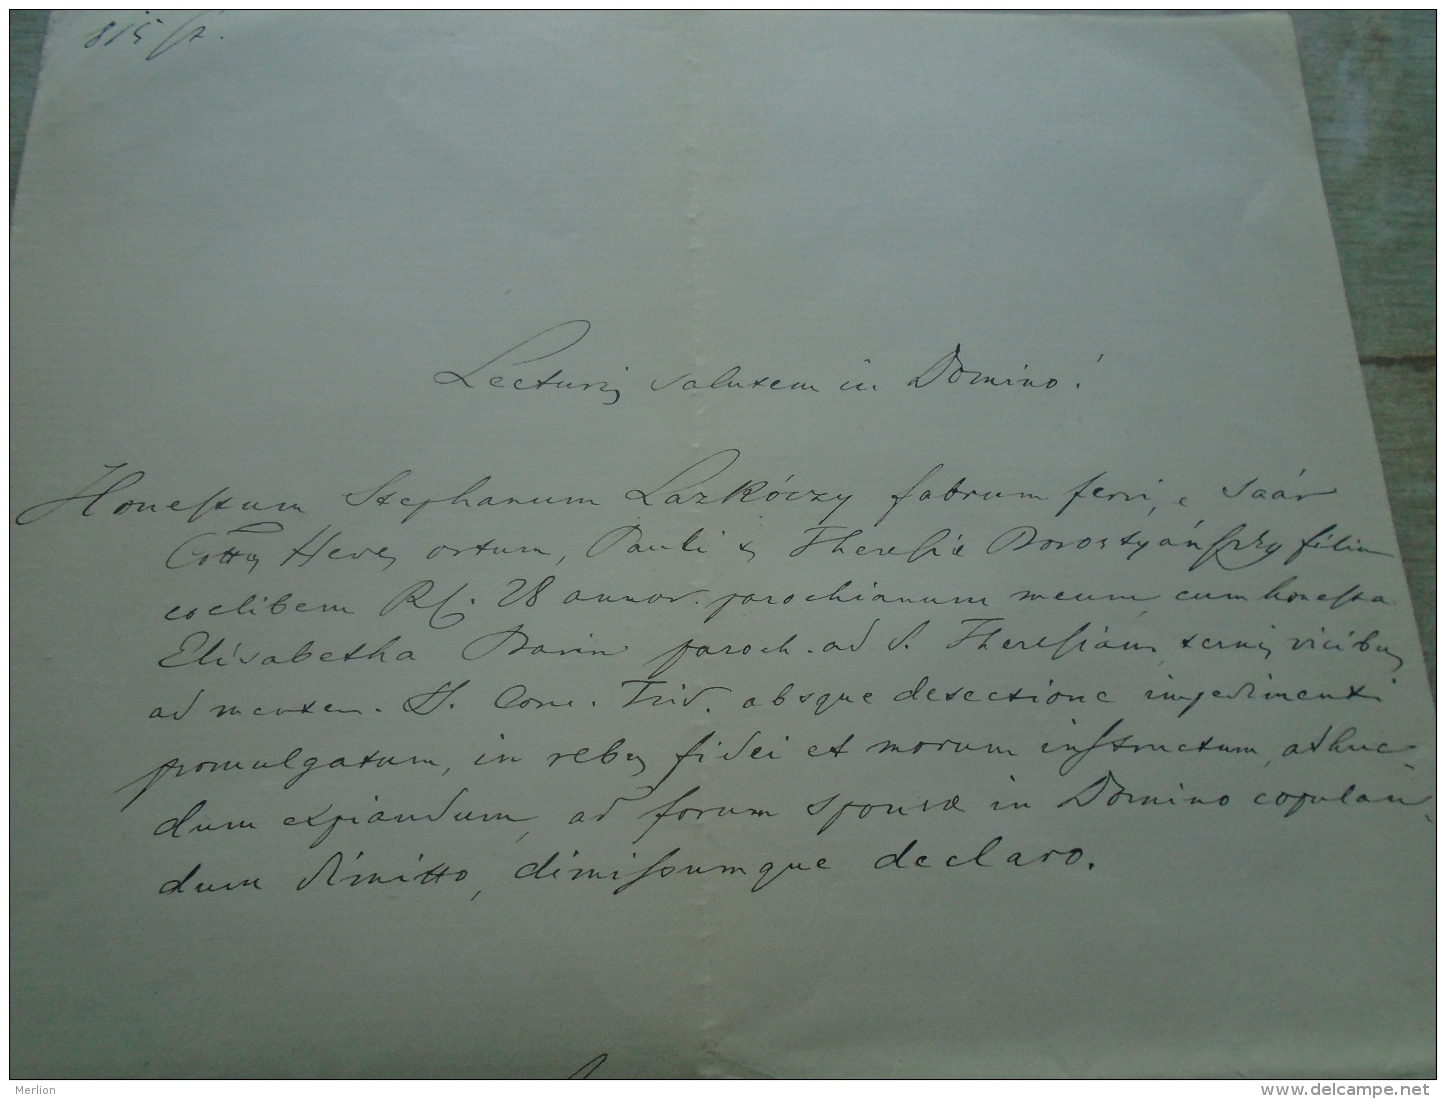 815 sz.
Lecturis salutem in Domino!
Honestum Stephanum Lazkóczy fabrum ferri, e Saár
Cottus Heves ortum, Pauli & Theresiæ Borostyánszky filium
coelibem RC. 28 annor. parochianum meum, cum honesta
Elisabetha Bavin paroch. ad S. Theresiam, ternis vicibus
ad mentem. S. Conc. Trid. absque detectione impedimenti
promulgatum, in rebus fidei et morum instructum, adhuc
dum expiandum, ad forum sponsæ in Domino copulan
dum dimitto, dimissumque declaro.
Merlion
www.delcampe.net